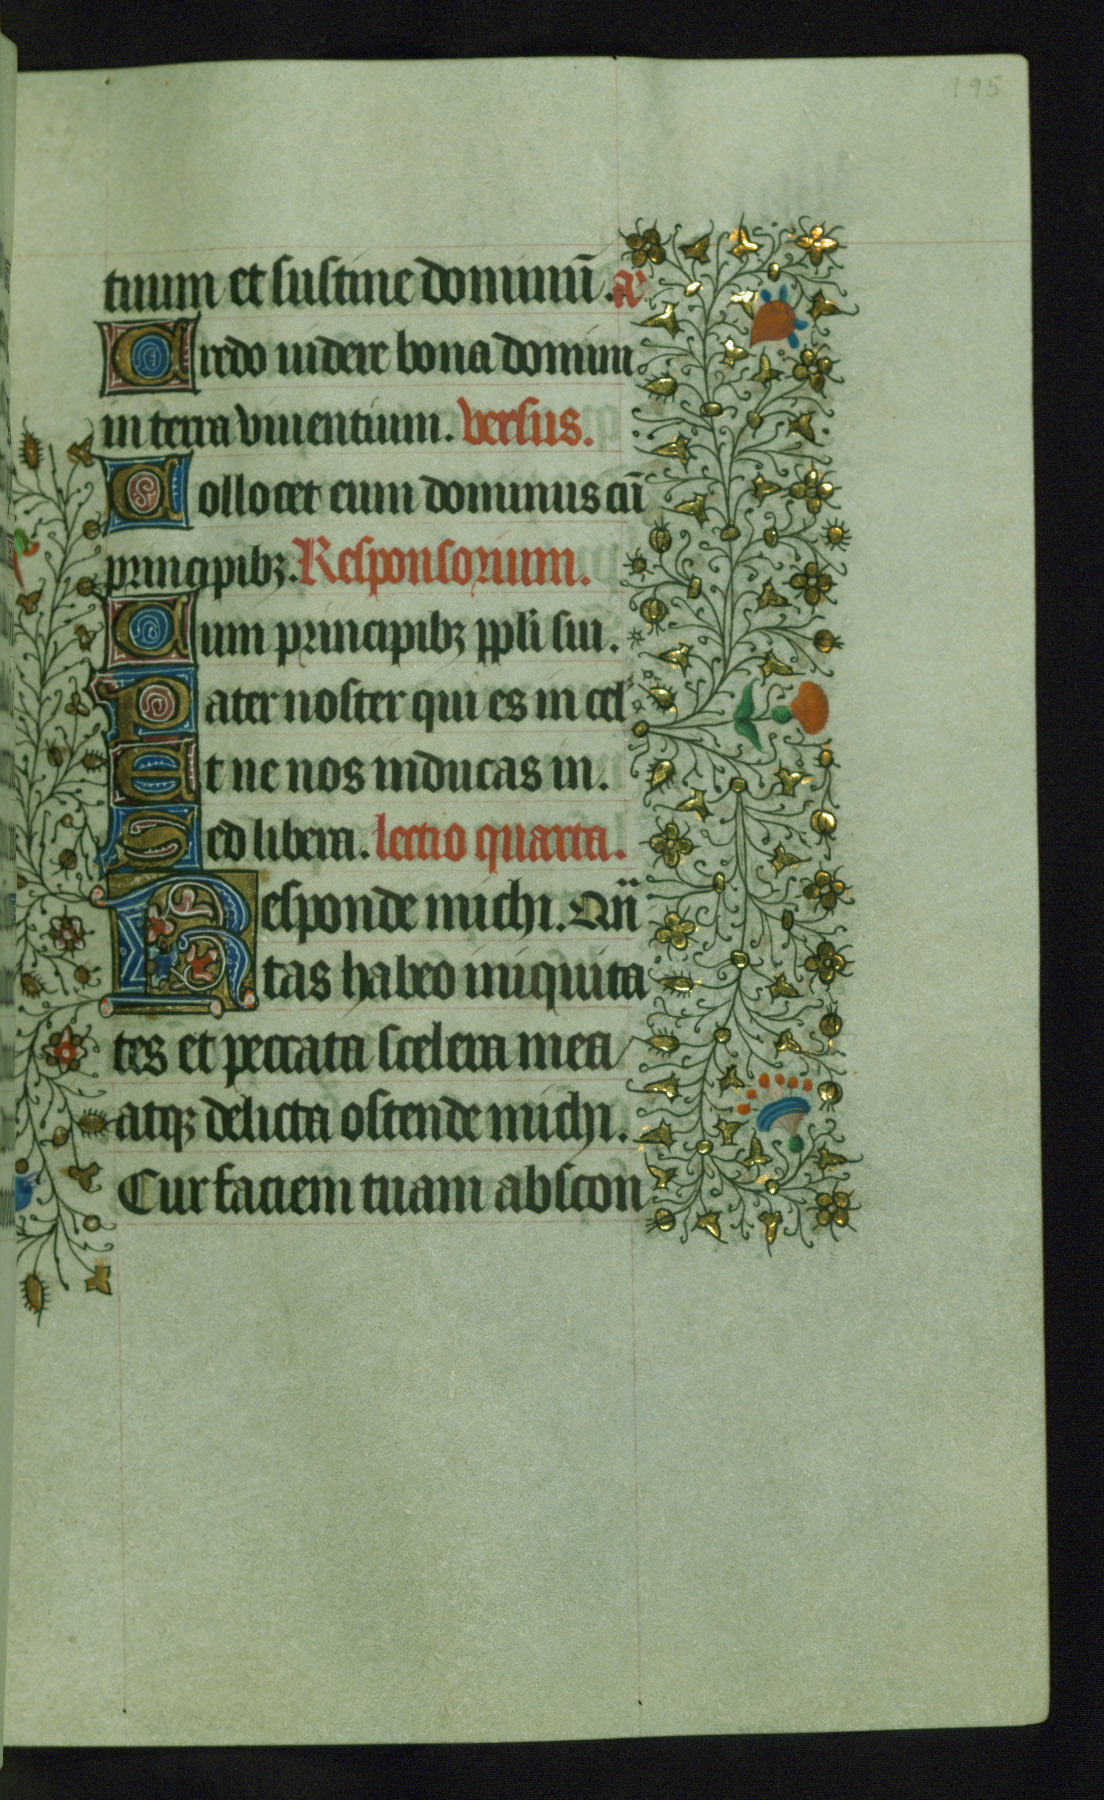 195
tuum et sustine dominū. aͣ
Credo uidere bona domini
in terra viuentium. versus.
Collocet eum dominus cū
principibꝫ. Responsorium.
Cum principibꝫ ppli sui.
Pater noster qui es in cel'
Et ne nos inducas in.
Sed libera. lectio quarta.
Responde michi. Qūtas habeo iniquita
tes et peccata scelera mea
atqꝫ delicta ostende michi.
Cur faciem tuam abscon